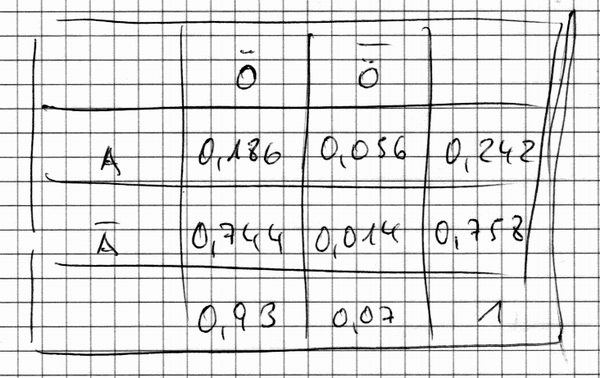 Ö Ö̅
A 0,186 0,056 0,242
A̅ 0,744 0,014 0,758
0,93 0,07 1